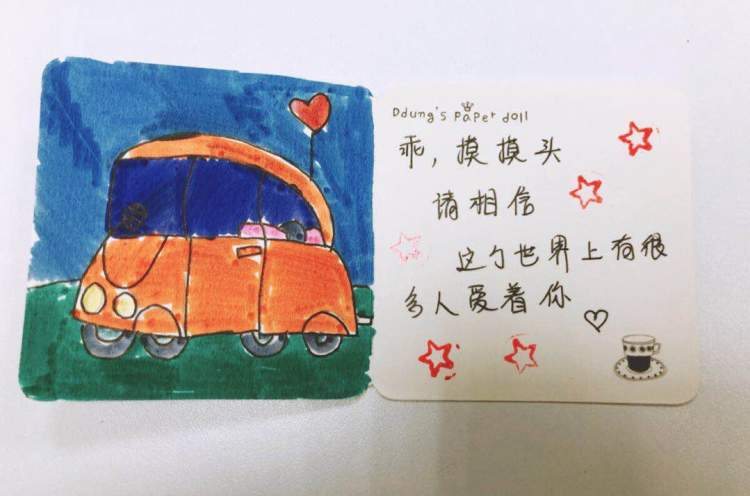 Ddung's Paper doll
乖，摸摸头
请相信
这个世界上有很
多人爱着你